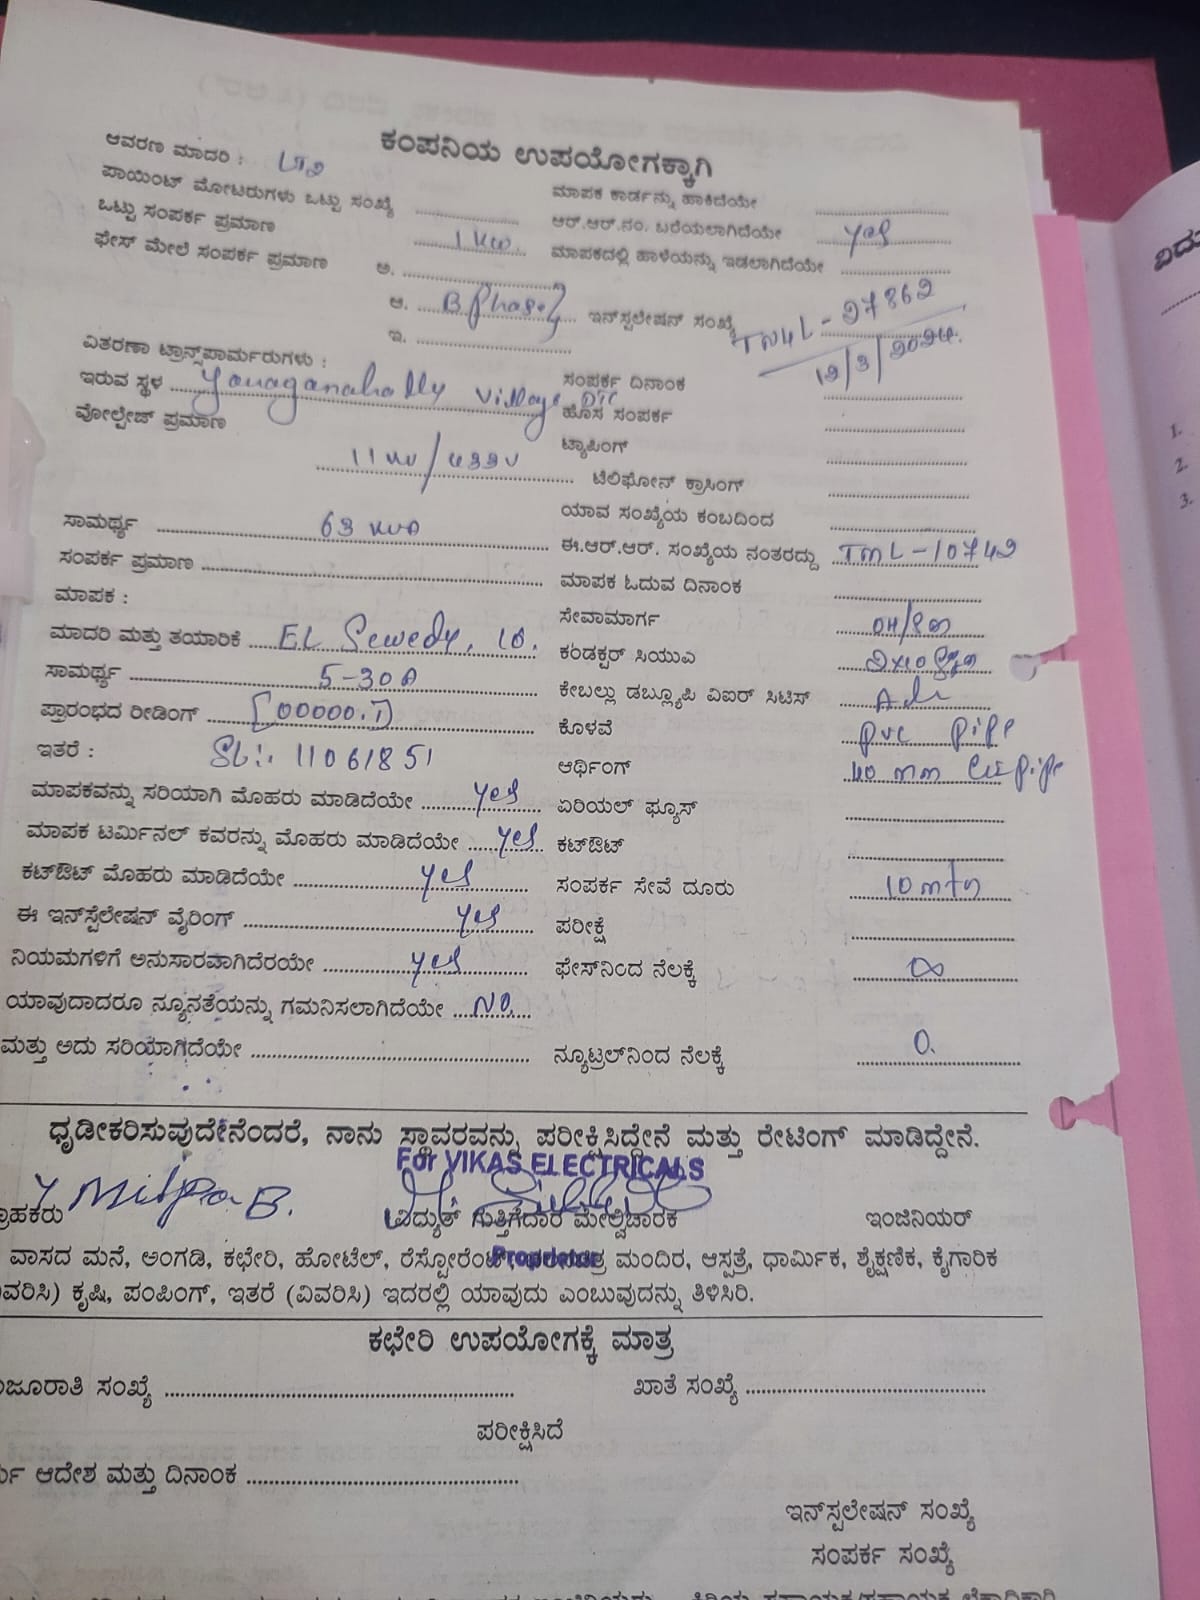 ಕಂಪನಿಯ ಉಪಯೋಗಕ್ಕಾಗಿ
ಆವರಣ ಮಾದರಿ : LT2
ಪಾಯಿಂಟ್ ಮೋಟರುಗಳು ಒಟ್ಟು ಸಂಖ್ಯೆ
ಒಟ್ಟು ಸಂಪರ್ಕ ಪ್ರಮಾಣ 1 KW
ಫೇಸ್ ಮೇಲೆ ಸಂಪರ್ಕ ಪ್ರಮಾಣ ಅ.
ಆ. B Phase
ಇ.
ವಿತರಣಾ ಟ್ರಾನ್ಸ್‌ಪಾರ್ಮರುಗಳು :
ಇರುವ ಸ್ಥಳ Yanaganahally Village DTC
ವೋಲ್ಟೇಜ್ ಪ್ರಮಾಣ
11 KV/433V
ಸಾಮರ್ಥ್ಯ 63 KVA
ಸಂಪರ್ಕ ಪ್ರಮಾಣ
ಮಾಪಕ :
ಮಾದರಿ ಮತ್ತು ತಯಾರಿಕೆ EL Sewedy,
ಸಾಮರ್ಥ್ಯ 5-30A
ಪ್ರಾರಂಭದ ರೀಡಿಂಗ್ [00000.1]
ಇತರೆ : SL:. 11061851
ಮಾಪಕವನ್ನು ಸರಿಯಾಗಿ ಮೊಹರು ಮಾಡಿದೆಯೇ yes
ಮಾಪಕ ಟರ್ಮಿನಲ್ ಕವರನ್ನು ಮೊಹರು ಮಾಡಿದೆಯೇ yes
ಕಟ್‌ಔಟ್ ಮೊಹರು ಮಾಡಿದೆಯೇ yes
ಈ ಇನ್‌ಸ್ಪೆಲೇಷನ್ ವೈರಿಂಗ್ yes
ನಿಯಮಗಳಿಗೆ ಅನುಸಾರವಾಗಿದೆರಯೇ yes
ಯಾವುದಾದರೂ ನ್ಯೂನತೆಯನ್ನು ಗಮನಿಸಲಾಗಿದೆಯೇ NO
ಮತ್ತು ಅದು ಸರಿಯಾಗಿದೆಯೇ
ಮಾಪಕ ಕಾರ್ಡನ್ನು ಹಾಕಿದೆಯೇ
ಆರ್.ಆರ್.ನಂ. ಬರೆಯಲಾಗಿದೆಯೇ yes
ಮಾಪಕದಲ್ಲಿ ಹಾಳೆಯನ್ನು ಇಡಲಾಗಿದೆಯೇ
ಇನ್‌ಸ್ಪಲೇಷನ್ ಸಂಖ್ಯೆ TN4L-27862
12/3/2024.
ಸಂಪರ್ಕ ದಿನಾಂಕ
ಹೊಸ ಸಂಪರ್ಕ
ಟ್ಯಾಪಿಂಗ್
ಟೆಲಿಫೋನ್ ಕ್ರಾಸಿಂಗ್
ಯಾವ ಸಂಖ್ಯೆಯ ಕಂಬದಿಂದ
ಈ.ಆರ್.ಆರ್. ಸಂಖ್ಯೆಯ ನಂತರದ್ದು TML-10742
ಮಾಪಕ ಓದುವ ದಿನಾಂಕ
ಸೇವಾಮಾರ್ಗ
ಕಂಡಕ್ಟರ್ ಸಿಯುಎ
ಕೇಬಲ್ಲು ಡಬ್ಲ್ಯೂಪಿ ವಿಐರ್ ಸಿಟಿಸ್
ಕೊಳವೆ PVC pipe
ಆರ್ಥಿಂಗ್ 40 mm
ಏರಿಯಲ್ ಫ್ಯೂಸ್
ಕಟ್‌ಔಟ್
ಸಂಪರ್ಕ ಸೇವೆ ದೂರು 10 mtr
ಪರೀಕ್ಷೆ
ಫೇಸ್‌ನಿಂದ ನೆಲಕ್ಕೆ ∞
ನ್ಯೂಟ್ರಲ್‌ನಿಂದ ನೆಲಕ್ಕೆ 0.
ಧೃಡೀಕರಿಸುವುದೇನೆಂದರೆ, ನಾನು ಸ್ಥಾವರವನ್ನು ಪರೀಕ್ಷಿಸಿದ್ದೇನೆ ಮತ್ತು ರೇಟಿಂಗ್ ಮಾಡಿದ್ದೇನೆ.
For VIKAS ELECTRICALS
ವಿದ್ಯುತ್ ಗುತ್ತಿಗೆದಾರ ಮೇಲ್ವಿಚಾರಕ ಇಂಜಿನಿಯರ್
ವಾಸದ ಮನೆ, ಅಂಗಡಿ, ಕಛೇರಿ, ಹೋಟೆಲ್, ಮಂದಿರ, ಆಸ್ಪತ್ರೆ, ಧಾರ್ಮಿಕ, ಶೈಕ್ಷಣಿಕ, ಕೈಗಾರಿಕ
ಕೃಷಿ, ಪಂಪಿಂಗ್, ಇತರೆ (ವಿವರಿಸಿ) ಇದರಲ್ಲಿ ಯಾವುದು ಎಂಬುವುದನ್ನು ತಿಳಿಸಿರಿ.
ಕಛೇರಿ ಉಪಯೋಗಕ್ಕೆ ಮಾತ್ರ
ಸಂಖ್ಯೆ ಖಾತೆ ಸಂಖ್ಯೆ
ಪರೀಕ್ಷಿಸಿದೆ
ಆದೇಶ ಮತ್ತು ದಿನಾಂಕ
ಇನ್‌ಸ್ಪಲೇಷನ್ ಸಂಖ್ಯೆ
ಸಂಪರ್ಕ ಸಂಖ್ಯೆ
1.
2.
3.